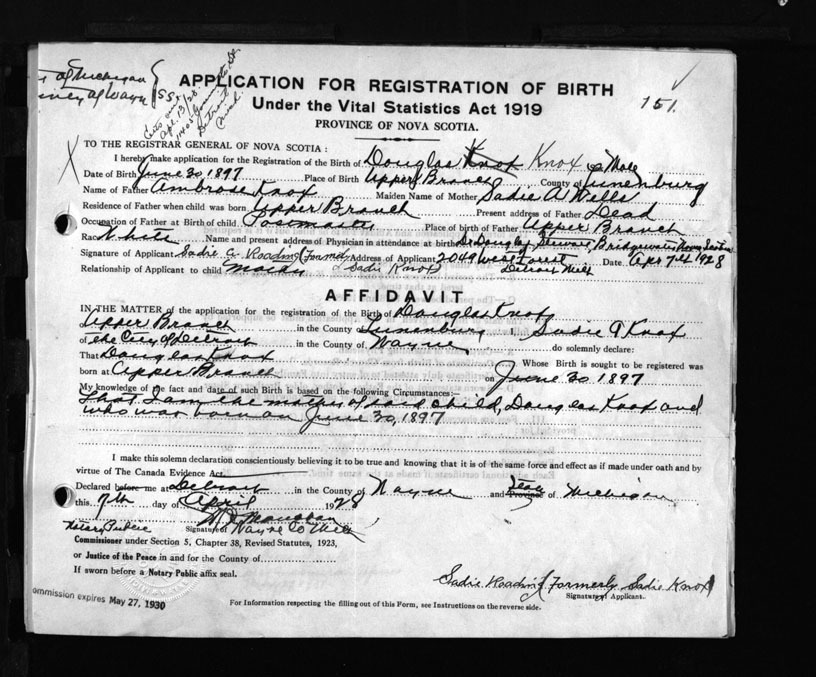 of Michigan
of Wayne } SS.
Apr. 13/28
Detroit
Mich
APPLICATION FOR REGISTRATION OF BIRTH
Under the Vital Statistics Act 1919
PROVINCE OF NOVA SCOTIA.
151.
TO THE REGISTRAR GENERAL OF NOVA SCOTIA :
I hereby make application for the Registration of the Birth of Douglas Knox Knox Male
Date of Birth June 30, 1897 Place of Birth Upper Branch County of Lunenburg
Name of Father Ambrose Knox Maiden Name of Mother Sadie A Wells
Residence of Father when child was born Upper Branch Present address of Father Dead
Occupation of Father at Birth of child Postmaster Place of birth of Father Upper Branch
Race White Name and present address of Physician in attendance at birth Dr Douglas Stewart, Bridgewater Nova Scotia
Signature of Applicant Sadie A. Roading (Formerly Address of Applicant 2049 West Forest Date Apr 7th 1928
Relationship of Applicant to child Mother Sadie Knox) Detroit Mich
AFFIDAVIT
IN THE MATTER of the application for the registration of the Birth of Douglas Knox
Upper Branch in the County of Lunenburg I, Sadie A Knox
of the City of Detroit in the County of Wayne do solemnly declare:
That Douglas Knox Whose Birth is sought to be registered was
born at Upper Branch on June 30, 1897
My knowledge of the fact and date of such Birth is based on the following Circumstances:—
That I am the mother of said child, Douglas Knox and
who was born on June 30, 1897
I make this solemn declaration conscientiously believing it to be true and knowing that it is of the same force and effect as if made under oath and by
virtue of The Canada Evidence Act.
Declared before me at Detroit in the County of Wayne and Province of Michigan
this 7th day of April 1928
Notary Public Signature of Wayne Co Mich
Commissioner under Section 5, Chapter 38, Revised Statutes, 1923,
or Justice of the Peace in and for the County of
If sworn before a Notary Public affix seal.
Sadie Roading (Formerly Sadie Knox)
Signature of Applicant.
ommission expires May 27, 1930
For Information respecting the filling out of this Form, see Instructions on the reverse side.